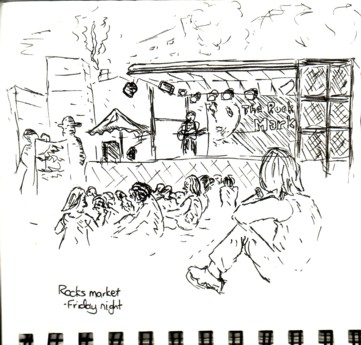 The Rock
Mark
Rocks market
-Friday night